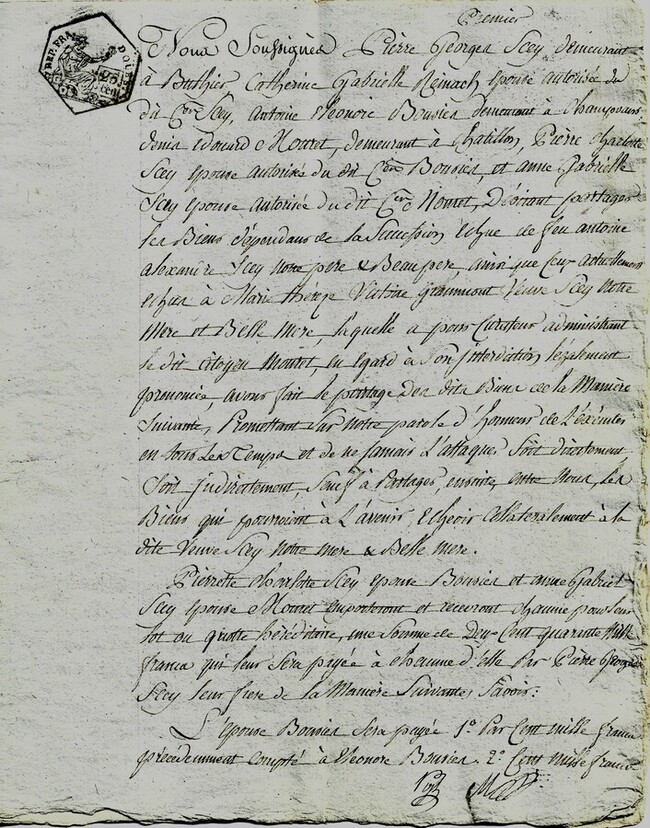 Premier
Nous Soussignés Pierre Georges Scey demeurant
à Buthier, Catherine Gabrielle Reinach epouse autorisée du
dit Cen Scey, Antoine Eleonore Bousies demeurant à Champvans
Denis Edouard Mouret, demeurant à Chatillon, Pierre Charlotte
Scey epouse autorisée du dit Cen Bousies, et anne Gabrielle
Scey epouse autorisée du dit Cen Mouret, Désirant partager
les Biens dépendans de la Succession échue de feu antoine
alexandre Scey notre pere & Beaupere, ainsi que ceux actuellement
echus à Marie thérèze Victoire grammont Veuve Scey notre
Mere et Belle Mere, laquelle a pour Curateur administrant
le dit Citoyen Mouret, eu Egard à Son Interdiction légalement
prononcée, avons fait le partage des dits Biens de la Manière
Suivante, Promettant Sur notre parole d'honneur de L'exécuter
en tous Les Temps et de ne Jamais L'attaquer Soit directement
Soit Indirectement, Sauf à Partager, ensuite, entre Nous, Les
Biens qui pourroient à L'avenir, Echeoir Collateralement à la
dite Veuve Scey notre mere & Belle mere.
Pierrette Charlotte Scey epouse Bousies et anne Gabriel
Scey epouse Mouret emporteront et recevront chacune pour leur
lot ou quotte héréditaire, une Somme de Deux Cent quarante Mille
francs qui leur Sera payée à chacune d'elle Par Pierre George
Scey leur frere de la Maniere Suivante, Savoir:
L'epouse Bousies Sera payée 1º Par Cent mille francs
précedemment Compté à Eleonore Bousies. 2º Cent mille francs